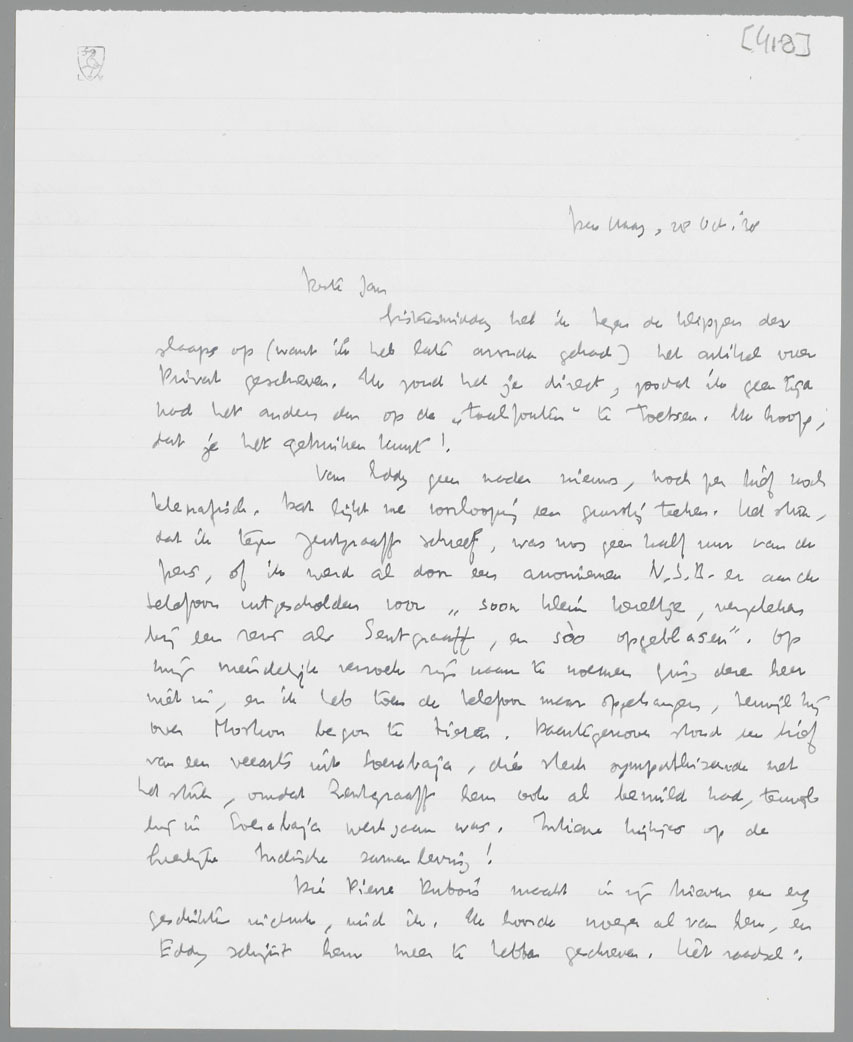 [418]
Den Haag, 28 Oct. '38
Beste Jan
Gistermiddag heb ik tegen de klippen des
slaaps op (want ik heb late avonden gehad) het artikel over
Privat geschreven. Ik zond het je direct, zoodat ik geen tijd
had het anders dan op de "taalfouten" te toetsen. Ik hoop,
dat je het gebruiken kunt!
Van Eddy geen nader nieuws, noch per brief noch
telegrafisch. Dat lijkt me voorloopig een gunstig teeken. Het stuk,
dat ik tegen Zentgraaff schreef, was nog geen half uur van de
pers, of ik werd al door een anoniemen N.S.B.-er aan de
telefoon uitgescholden voor "soon klein kereltje, vergeleken
bij een reus als Sentgraaff, en sòo opgeblasen". Op
mijn vriendelijk verzoek zijn naam te noemen ging deze heer
niet in, en ik heb toen de telefoon maar opgehangen, terwijl hij
over Moskou begon te tieren. Daartegenover stond een brief
van een veearts uit Soerabaja, die sterk sympathiseerde met
het stuk, omdat Zentgraaff hem ook al bevuild had, terwijl
hij in Soerabaja werkzaam was. Intieme kijkjes op de
heerlijke Indische samenleving!
Die Pierre Dubois maakt in zijn brieven een erg
geschikten indruk, vind ik. Ik hoorde vroeger al van hem, en
Eddy schijnt hem meer te hebben geschreven. Hèt raadsel: